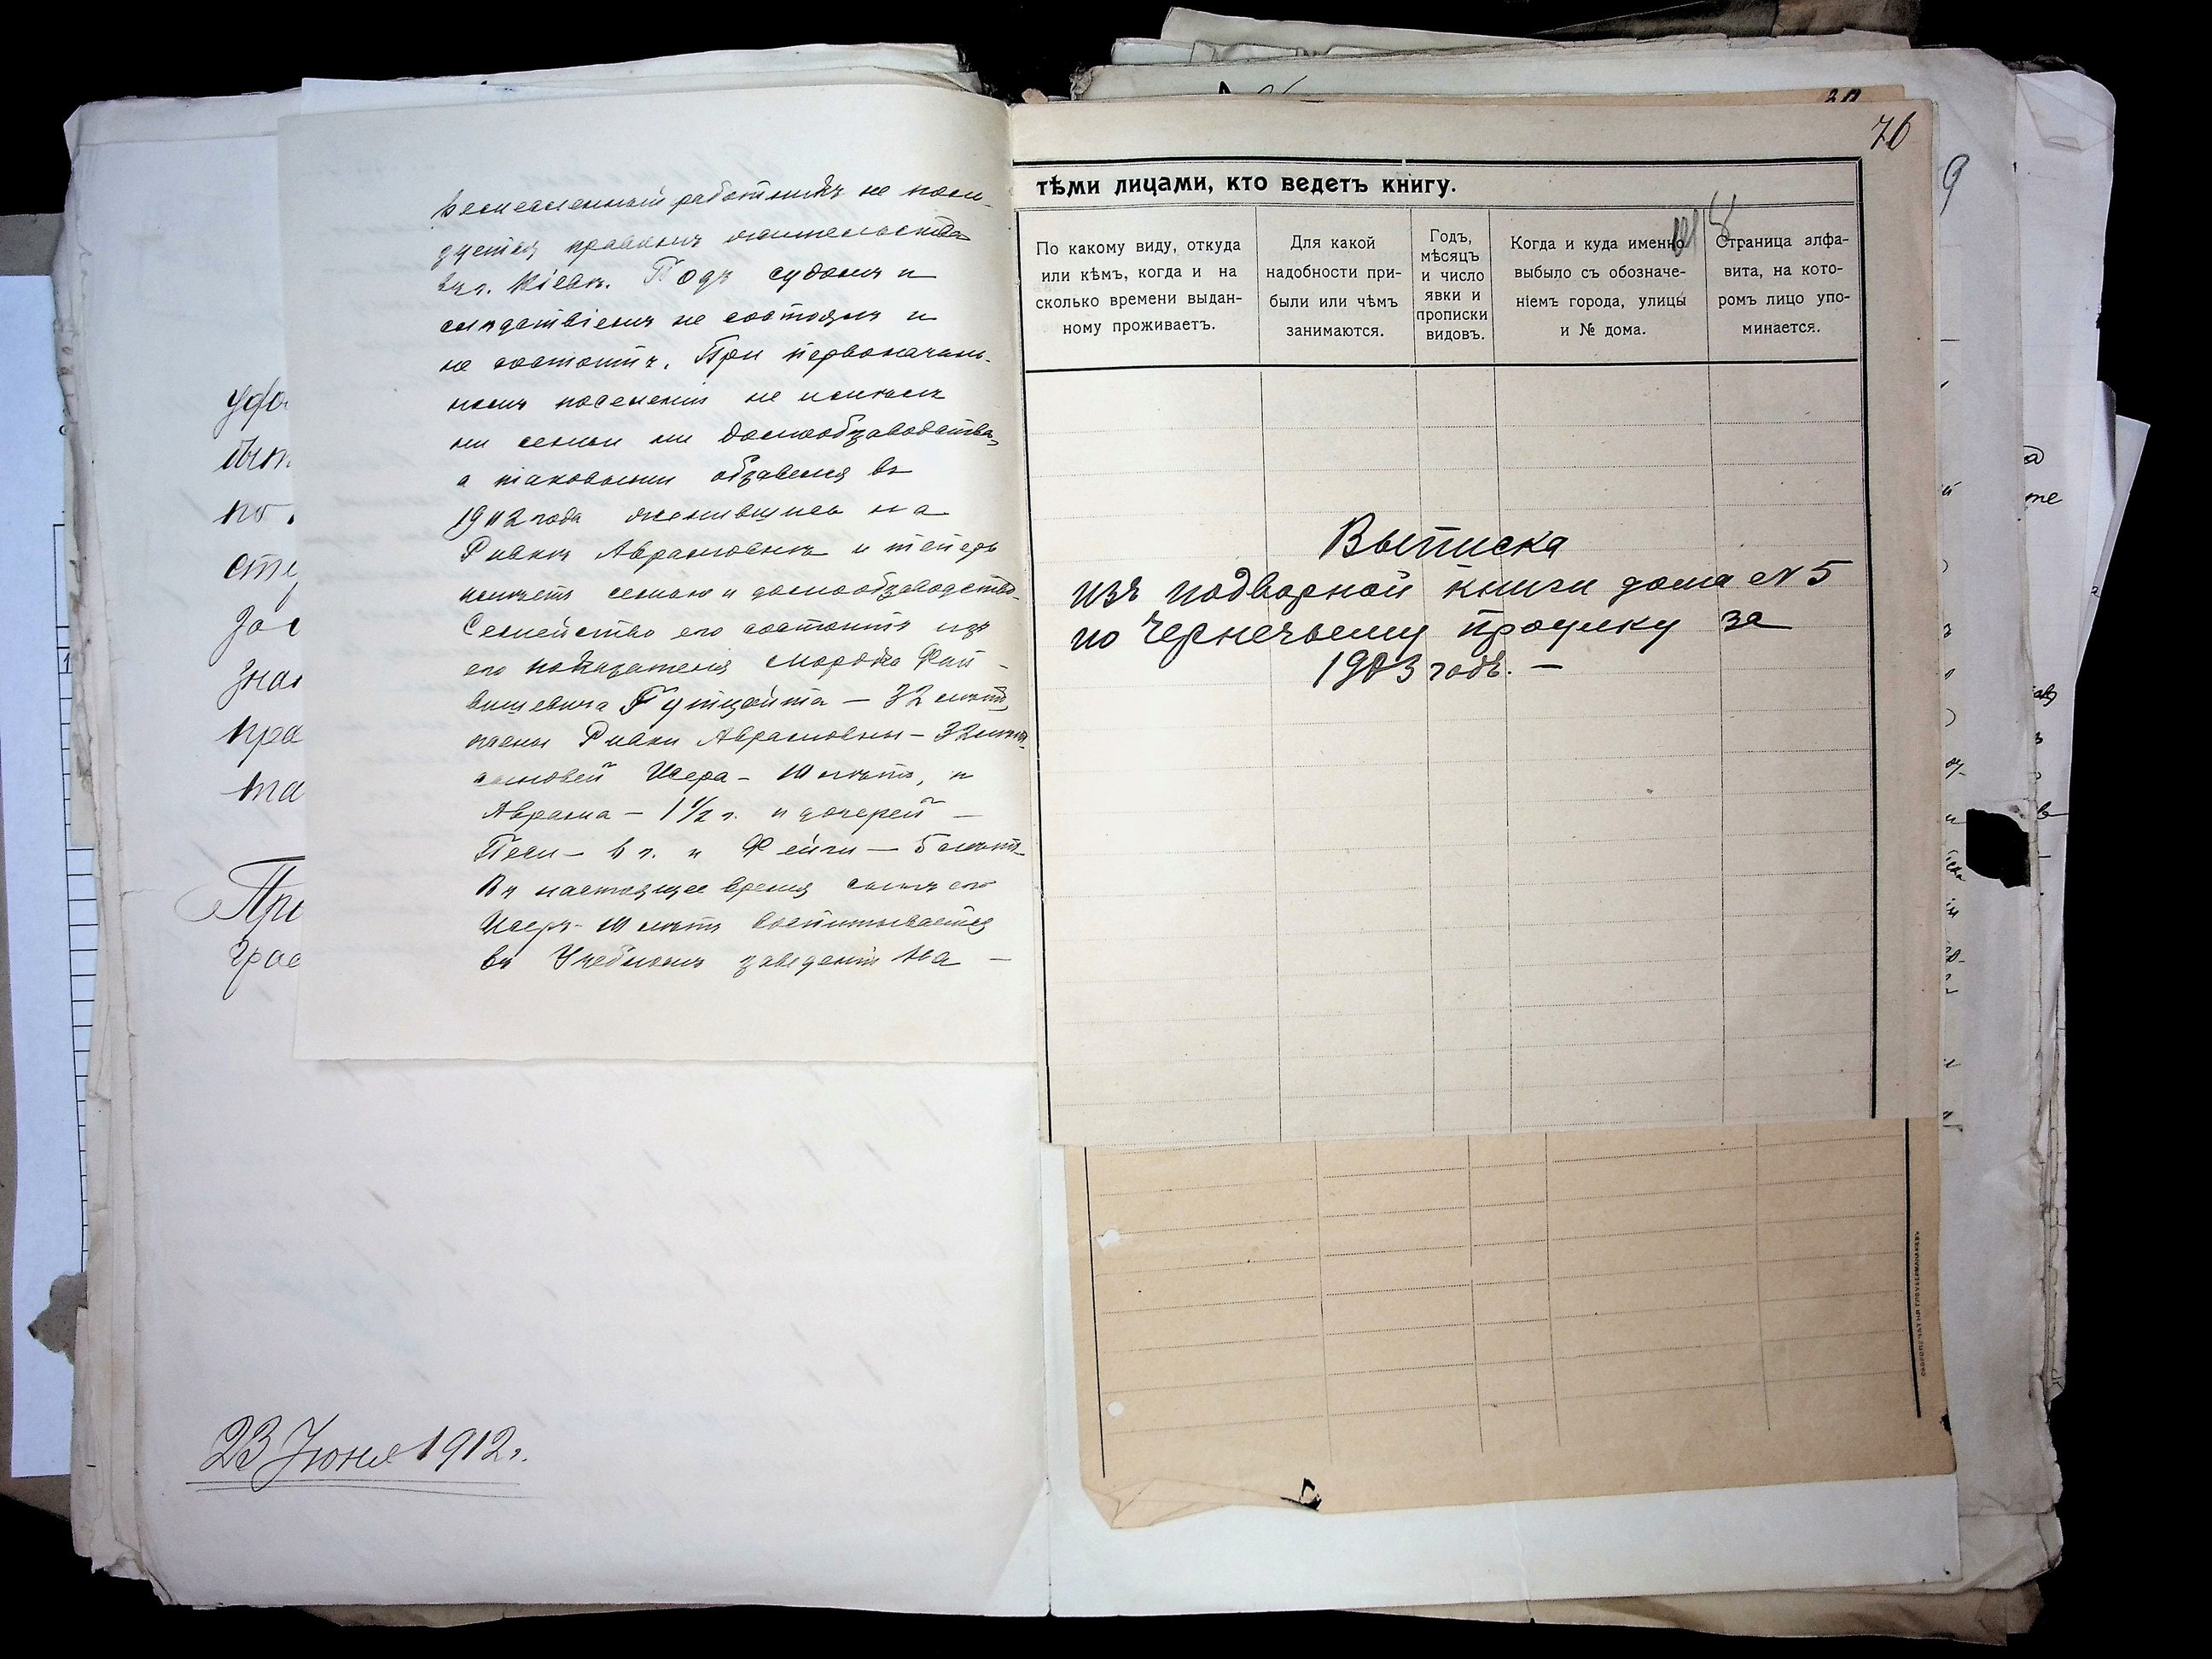 ремесленный работникъ не поль-
зуется правомъ жительства
въ г. Кіевѣ. Подъ судомъ и
слѣдствіемъ не состоялъ и
не состоитъ. При первоначаль-
номъ поселеніи не имѣлъ
ни семьи ни домообзаводства,
а таковыми обзавелся въ
1902 года женившись на
Ривкѣ Аврамовнѣ и теперь
имѣетъ семью и домообзаводство.
Семейство его состоитъ изъ
его показателя Мордко Фай-
вишевича Гутцайта — 32 лѣтъ,
жены Ривки Аврамовны — 32 лѣтъ,
сыновей Исера — 10 лѣтъ, и
Аврама — 1 1/2 г. и дочерей —
Песи — 6 г. и Фейги — 5 лѣтъ.
Въ настоящее время сынъ его
Исеръ 10 лѣтъ воспитывается
въ Учебномъ заведеніи
уфо
по
сте
зна
пра
та
При
гра
23 Іюня 1912 г.
76
тѣми лицами, кто ведетъ книгу.
По какому виду, откуда
или кѣмъ, когда и на
сколько времени выдан-
ному проживаетъ.
Для какой
надобности при-
были или чѣмъ
занимаются.
Годъ,
мѣсяцъ
и число
явки и
прописки
видовъ.
Когда и куда именно
выбыло съ обозначе-
ніемъ города, улицы
и № дома.
Страница алфа-
вита, на кото-
ромъ лицо упо-
минается.
Выписка
изъ подворной книги дома № 5
по Чернечьему проулку за
1903 годъ. —
9